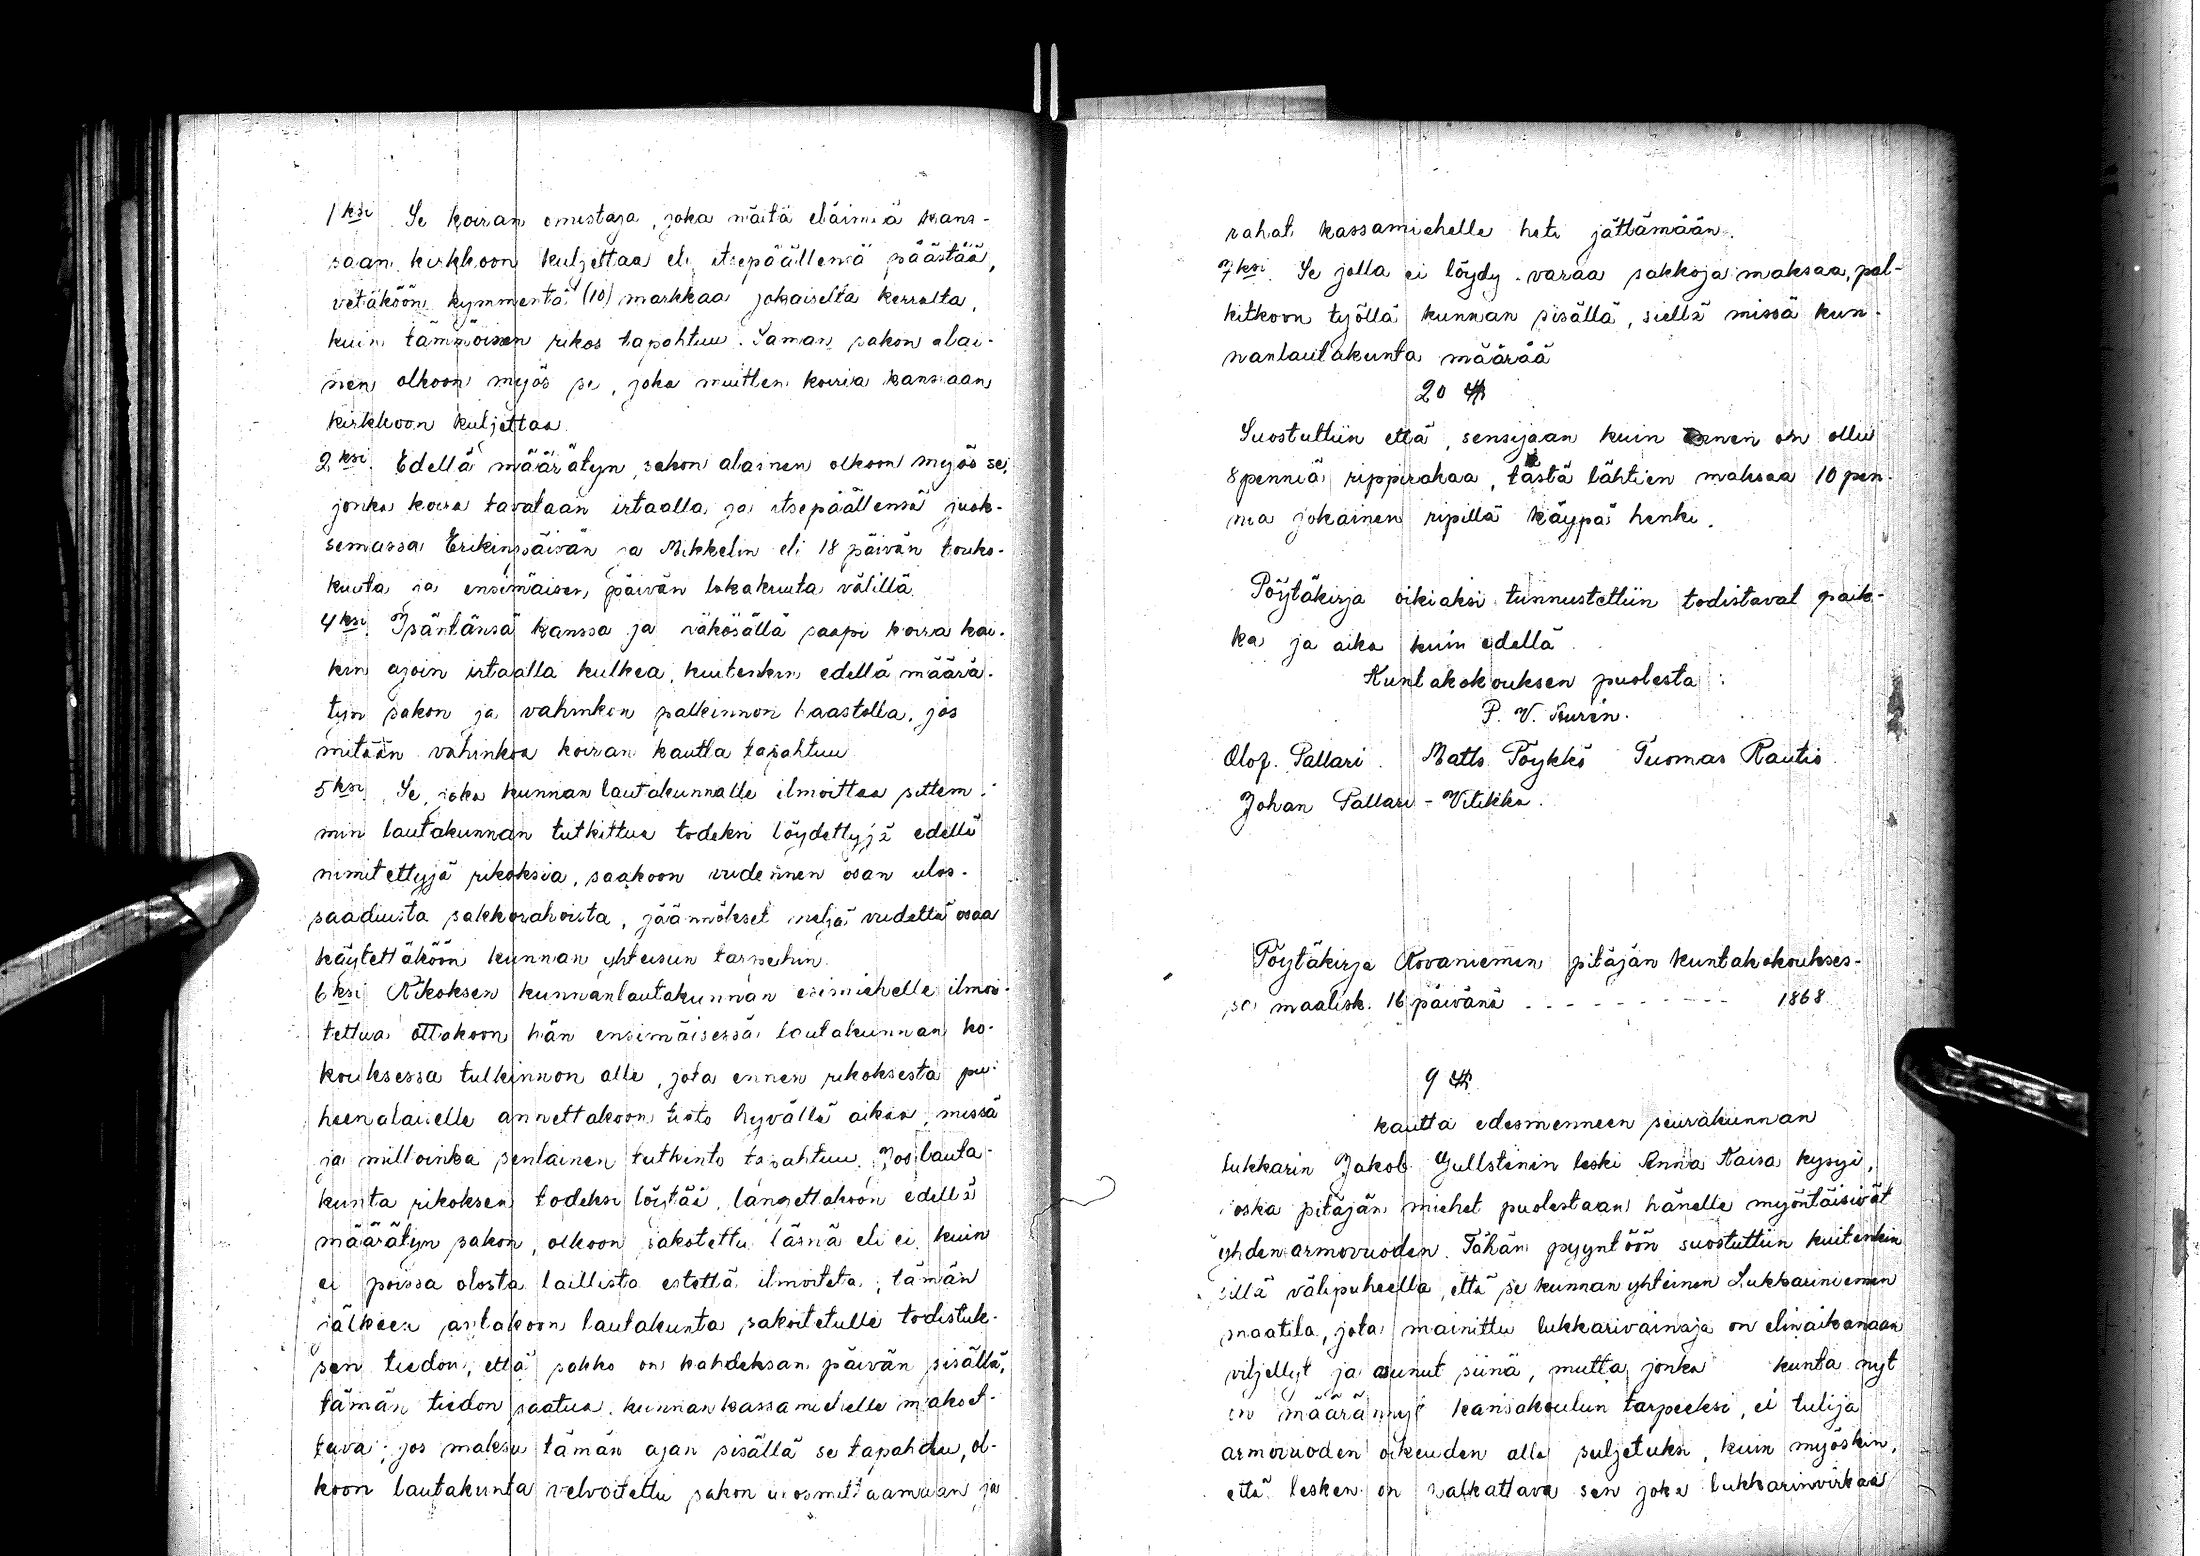 1ksi Se koiran omistaja, joka näitä eläimiä kans-
saan kirkkoon kuljettaa eli itsepäällensä päästää,
vetäköön kymmentä (10) markkaa jokaiselta kerralta,
kuin tämmöinen rikos tapahtuu. Saman sakon alai-
nen olkoon myös se, joka muitten koiria kanssaan
kirkkoon kuljettaa.
2ksi. Edellä määrätyn sakon alainen olkoon myös se,
jonka koira tavataan irtaalla ja itsepäällensä juok-
semassa Erikinpäivän ja Mikkelin eli 18 päivän touko-
kuuta ja ensimäisen päivän lokakuuta välillä.
4ksi. Isäntänsä kanssa ja näkösällä saapi koira kai-
kin ajoin irtaalla kulkea, kuitenkin edellä määrä-
tyn sakon ja vahinkon palkinnon haastolla, jos
mitään vahinkoa koiran kautta tapahtuu
5ksi. Se, joka kunnan lautakunnalle ilmoittaa sittem-
min lautakunnan tutkittua todeksi löydettyjä edellä
nimitettyjä rikoksia, saakoon viidennen osan ulos-
saaduista sakkorahoista, jäännökset neljä viidettä osaa
käytettäköön kunnan yhteisiin tarpehin.
6ksi Rikoksen kunnanlautakunnan esimiehelle ilmoi-
tettua ottakoon hän ensimäisessä lautakunnan ko-
kouksessa tutkinnon alle, jota ennen rikoksesta pu-
heenalaiselle annettakoon tieto hyvällä aikaa, missä
ja milloinka senlainen tutkinto tapahtuu. Jos lauta-
kunta rikoksen todeksi löytää, langettakoon edellä
määrätyn sakon, olkoon sakotettu läsnä eli ei, kuin
ei poissa olosta laillista estettä ilmoiteta; tämän
jälkeen antakoon lautakunta sakoitetulle todistuk-
sen tiedon, että sakko on kahdeksan päivän sisällä,
tämän tiedon saatua, kunnan kassamiehelle makset-
tava; jos maksu tämän ajan sisällä se tapahdu, ol-
koon lautakunta velvoitettu sakon uosmittaamaan ja
rahat kassamiehelle heti jättämään.
7ksi. Se jolla ei löydy varaa sakkoja maksaa, pal-
kitkoon työllä kunnan sisällä, siellä missä kun-
nanlautakunta määrää
20 §
Suostuttiin että, sensijaan kuin ennen on ollu
8 penniä rippirahaa, tästä lähtien maksaa 10 pen-
niä jokainen ripillä käypä henki.
Pöytäkirja oikiaksi tunnustettiin todistavat paik-
ka ja aika kuin edellä.
Kuntakokouksen puolesta:
P. V. Aurén.
Olof. Pallari. Matts Pöykkö Tuomas Rautio.
Johan Pallari-Vitikka.
Pöytäkirja Rovaniemen pitäjän kuntakokoukses-
sa maalisk. 16 päivänä - - - - - - - - 1868.
9 §
kautta edesmenneen seurakunnan
lukkarin Jakob Gullsténin leski Anna Kaisa kysyi,
joska pitäjän miehet puolestaan hänelle myöntäisivät
yhden armovuoden. Tähän pyyntöön suostuttiin kuitenkin
sillä välipuheella, että se kunnan yhteinen Lukkariniemen
maatila, jota mainittu lukkarivainaja on elinaikanaan
viljellyt ja asunut siinä, mutta jonka kunta nyt
on määrännyt kansakoulun tarpeeksi, ei tulija
armovuoden oikeuden alle suljetuksi, kuin myöskin,
että lesken on palkattava sen joka lukkarinvirkaa